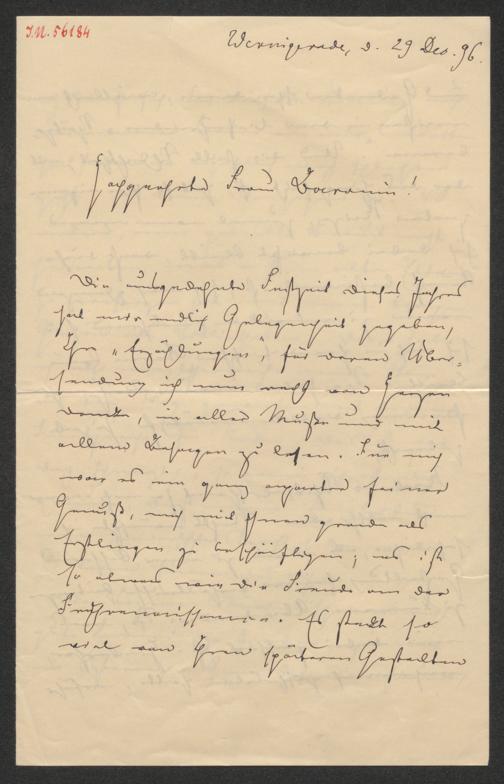 J.N. 56184
Wernigerode, d. 29 Dec. 96.
Hochgeehrte Frau Baronin!
Die ausgedehnte Festzeit dieses Jahres
hat mir endlich Gelegenheit gegeben,
Ihre „Erzählungen“, für deren Über-
sendung ich nun recht von Herzen
danke, in aller Muße und mit
allem Behagen zu lesen. Für mich
war es ein ganz aparter feiner
Genuß, mich mit Ihnen grade als
Erstlingen zu beschäftigen; es ist
so etwas wie die Freude an der
Es steckt so
viel von Ihren späteren Gestalten